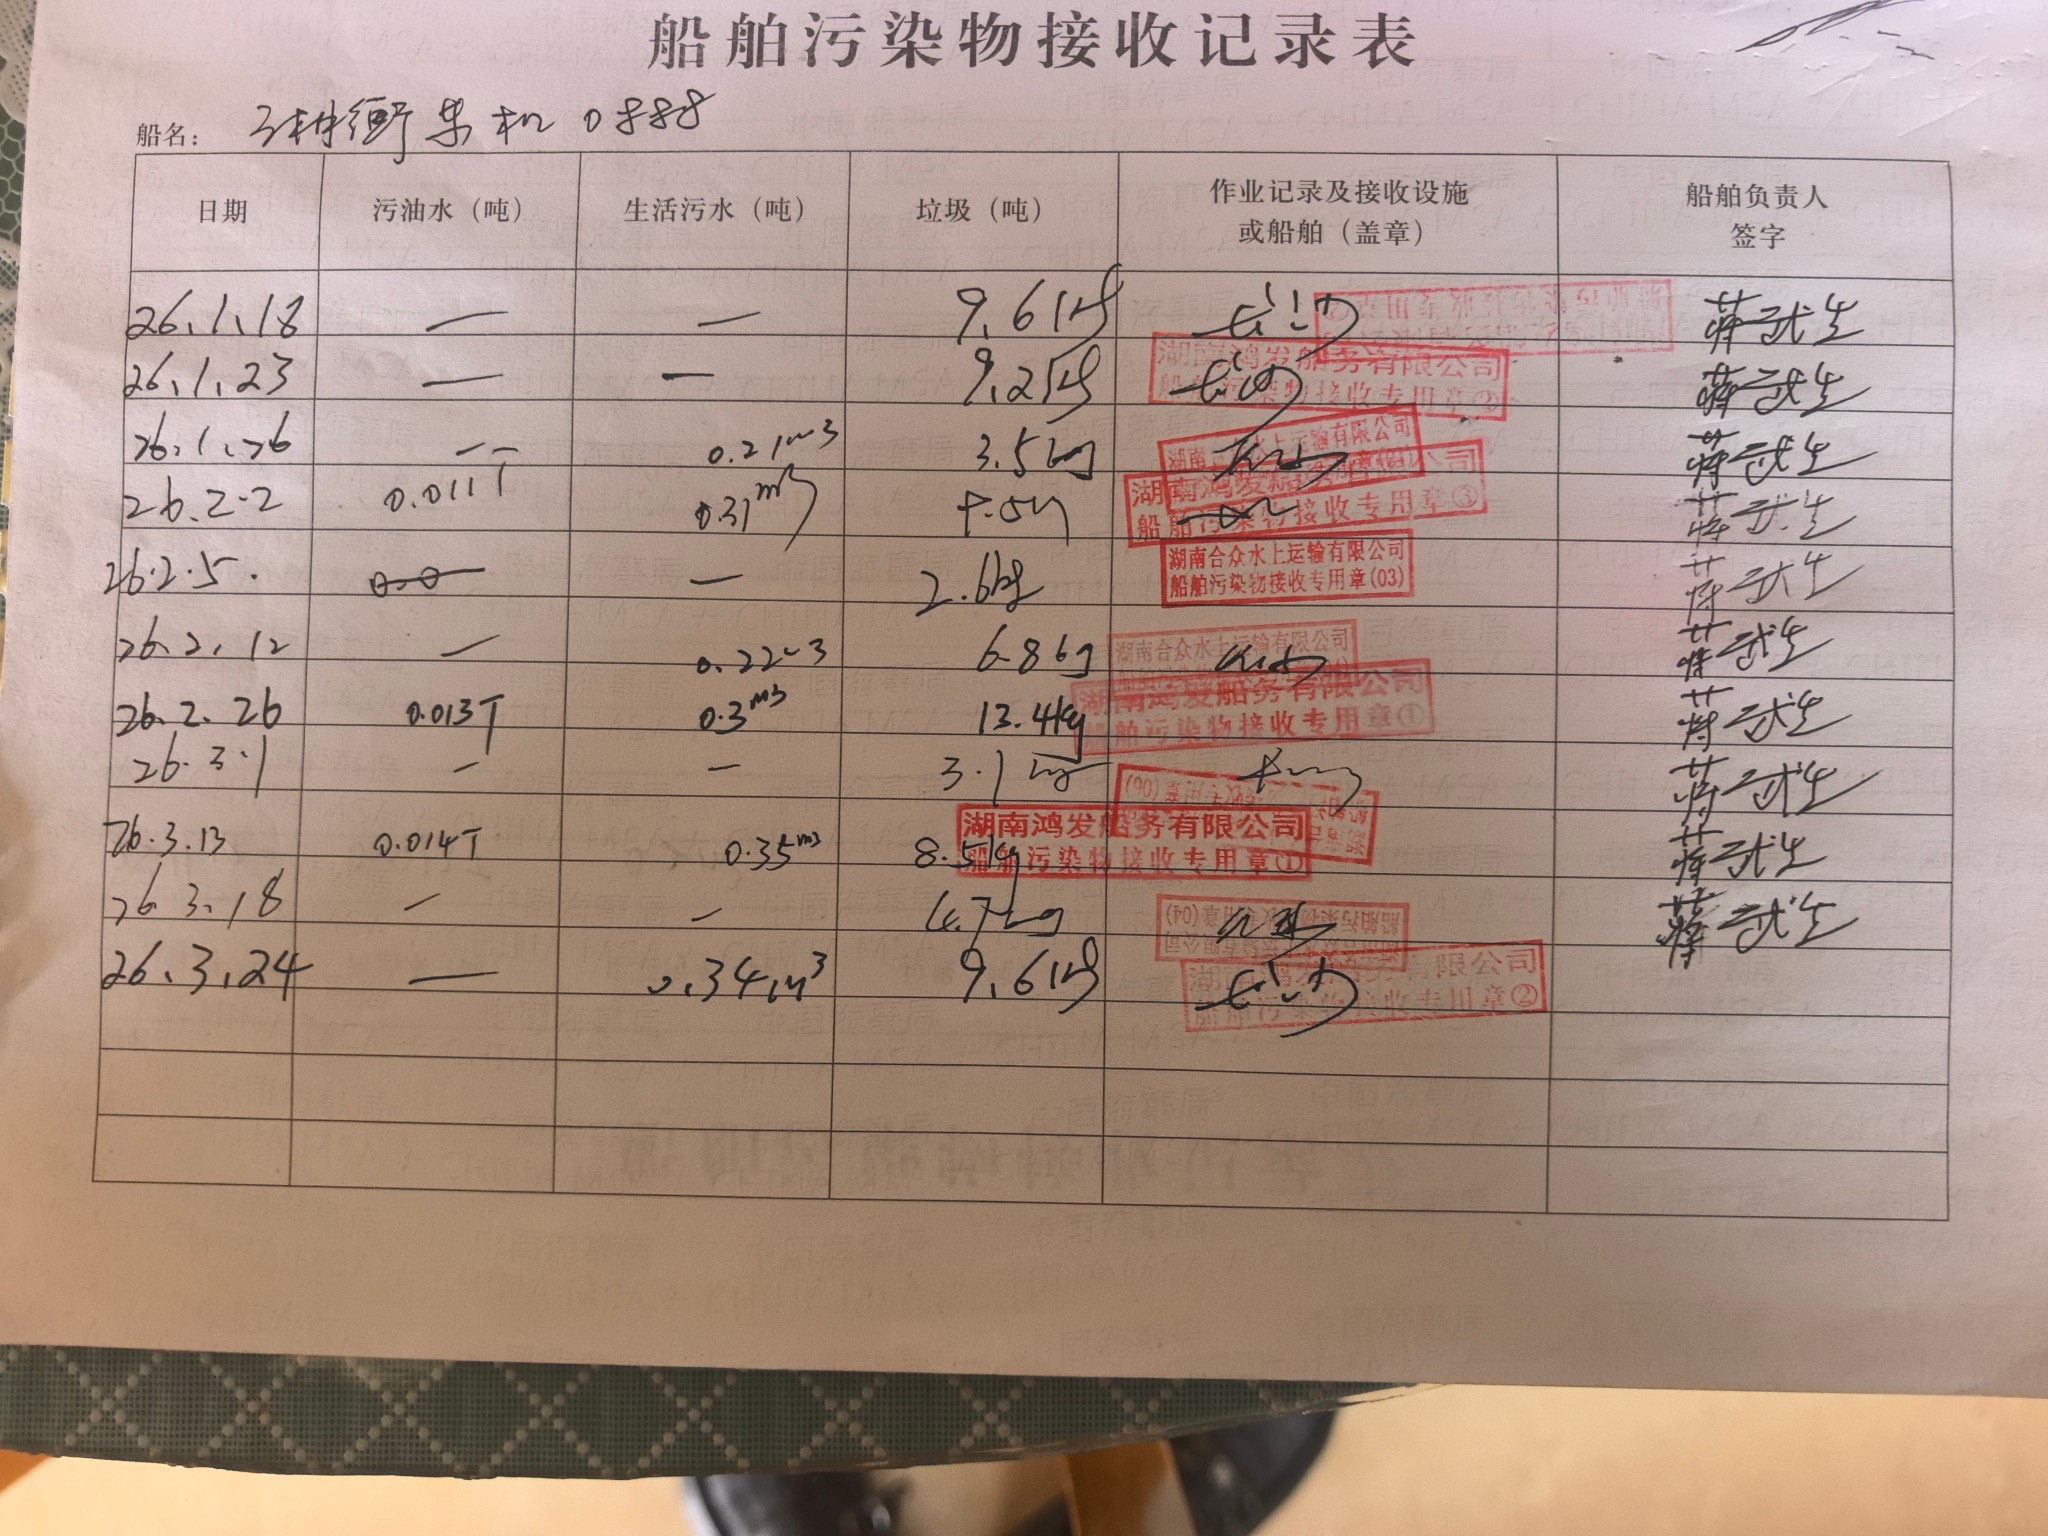 船舶污染物接收记录表
船名： 集机0888
日期 污油水（吨） 生活污水（吨） 垃圾（吨） 作业记录及接收设施或船舶（盖章） 船舶负责人签字
26.1.18 — — 9.6kg 蒋武生
26.1.23 — — 9.2kg 湖南鸿发船务有限公司 船舶污染物接收专用章② 蒋武生
26.1.26 — 0.21m3 3.5kg 湖南合众水上运输有限公司 蒋武生
26.2.2 0.011T 0.31m3 湖南鸿发船务有限公司 船舶污染物接收专用章③ 蒋武生
26.2.5. — 2.6kg 湖南合众水上运输有限公司 船舶污染物接收专用章(03) 蒋武生
26.2.12 — 0.22m3 6.8kg 湖南合众水上运输有限公司 蒋武生
26.2.26 0.013T 0.3m3 13.4kg 湖南鸿发船务有限公司 船舶污染物接收专用章① 蒋武生
26.3.1 — — 3.1kg 蒋武生
26.3.13 0.014T 0.35m3 8.5kg 湖南鸿发船务有限公司 船舶污染物接收专用章① 蒋武生
26.3.18 — — 4.7kg 蒋武生
26.3.24 — 0.34m3 9.6kg 湖南鸿发船务有限公司 船舶污染物接收专用章②